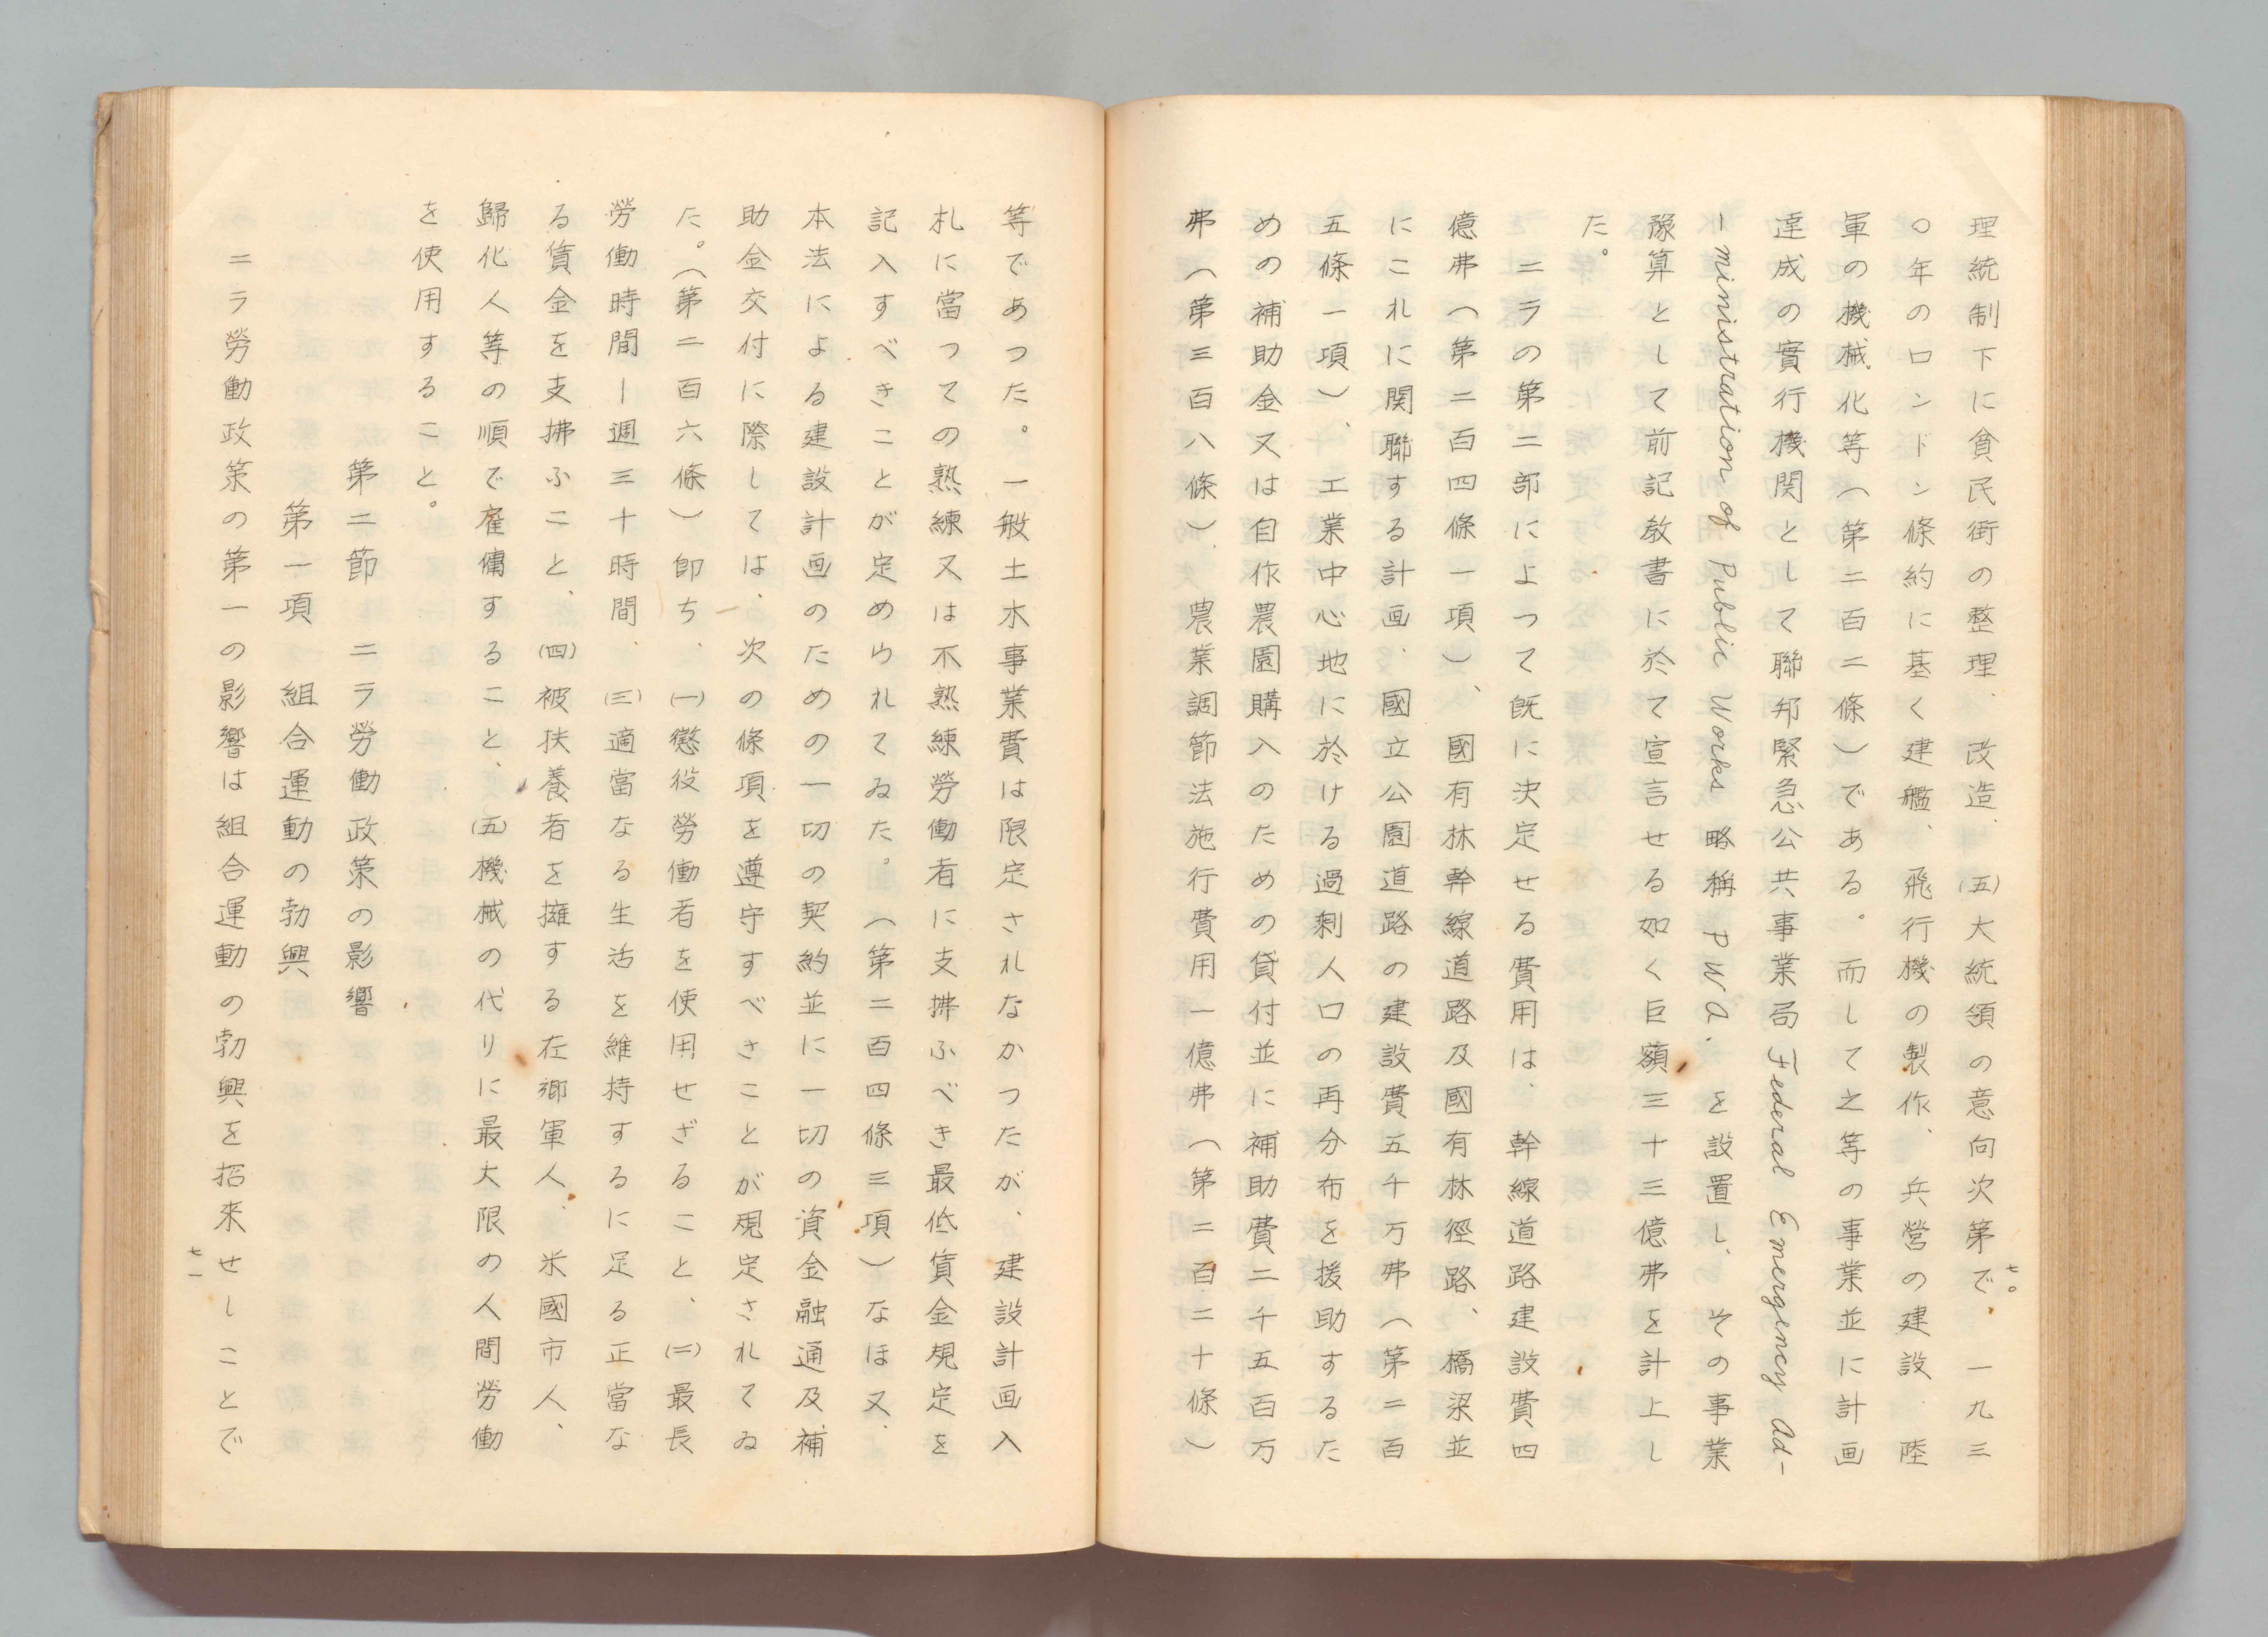 理統制下に貧民街の整理、改造、(五)大統領の意向次第で、一九三
〇年のロンドン條約に基く建艦、飛行機の製作、兵營の建設、陸
軍の機械化等(第二百二條)である。而して之等の事業並に計画
達成の實行機関として聯邦緊急公共事業局Federal Emergency Ad-
-ministration of Public Works 略稱 PWA. を設置し、その事業
豫算として前記教書に於て宣言せる如く巨額三十三億弗を計上し
た。
ニラの第二部によつて既に決定せる費用は、幹線道路建設費四
億弗(第二百四條一項)、國有林幹線道路及國有林徑路、橋梁並
にこれに関聯する計画、國立公園道路の建設費五千万弗(第二百
五條一項)、工業中心地に於ける過剰人口の再分布を援助するた
めの補助金又は自作農園購入のための貸付並に補助費二千五百万
弗(第三百八條)、農業調節法施行費用一億弗(第二百二十條)
七〇
等であつた。一般土木事業費は限定されなかつたが、建設計画入
札に當つての熟練又は不熟練勞働者に支拂ふべき最低賃金規定を
記入すべきことが定められてゐた。(第二百四條三項)なほ又、
本法による建設計画のための一切の契約並に一切の資金融通及補
助金交付に際しては、次の條項を遵守すべきことが規定されてゐ
た。(第二百六條)即ち、(一)懲役勞働者を使用せざること、(二)最長
勞働時間ー週三十時間、(三)適當なる生活を維持するに足る正當な
る賃金を支拂ふこと、(四)被扶養者を擁する在鄉軍人、米國市人、
歸化人等の順で雇傭すること、(五)機械の代りに最大限の人間勞働
を使用すること。
第二節 ニラ勞働政策の影響
第一項 組合運動の勃興
ニラ勞働政策の第一の影響は組合運動の勃興を招来せしことで
七一